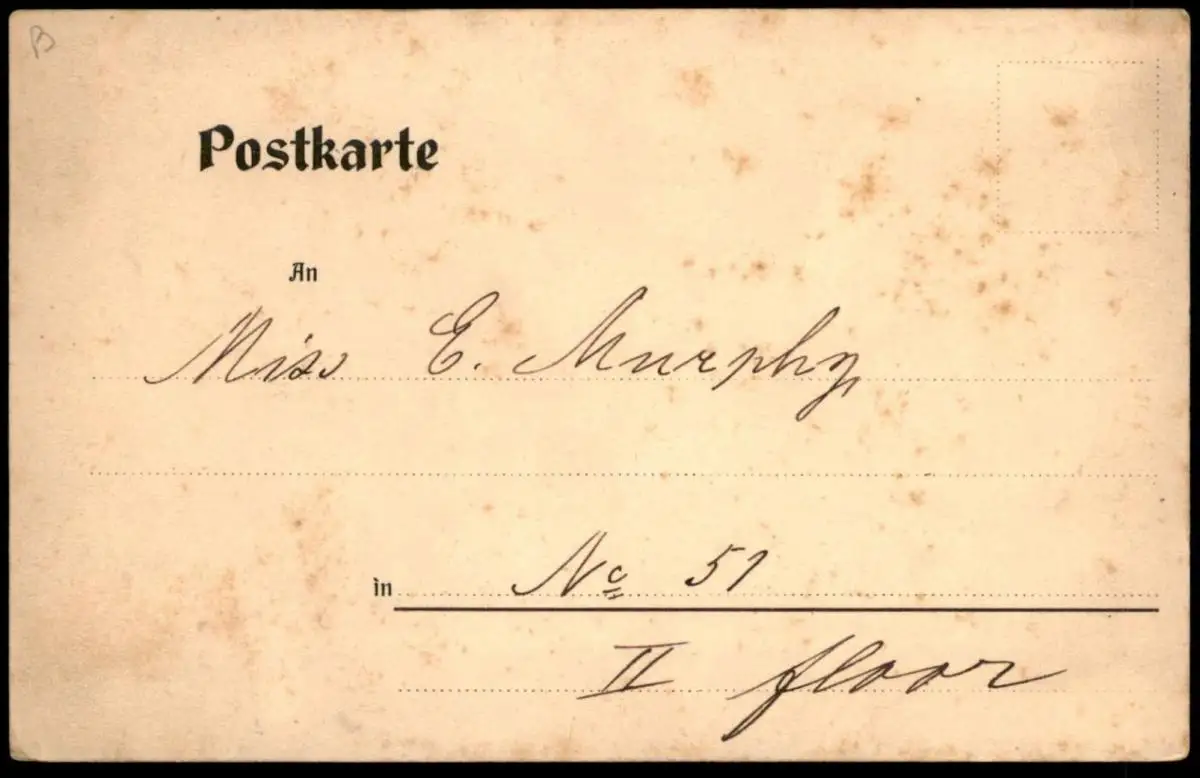 B
Postkarte
An
Miss E. Murphy,
in No 51
II floor